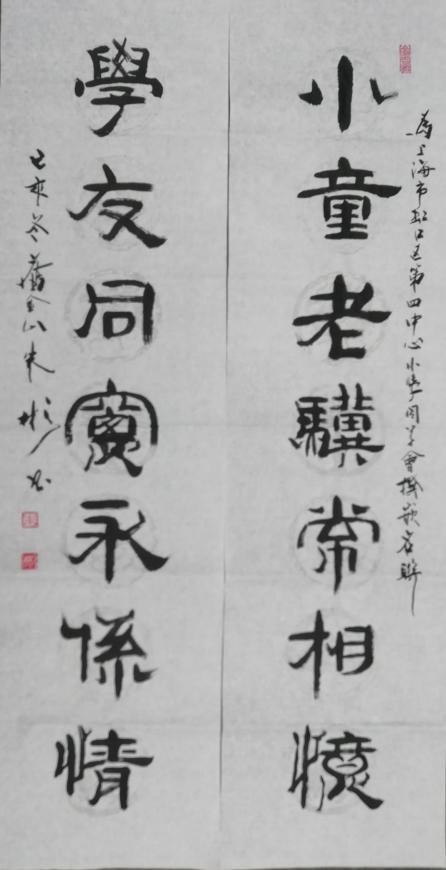 為上海市虹口區第四中心小學同學會撰嵌名聯
小童老驥常相憶
學友同窗永係情
己亥冬舊金山朱